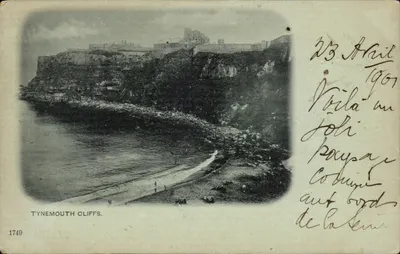 23 Avril
1901
Voilà un
joli
paysage
comme
aux bords
de la
TYNEMOUTH CLIFFS.
1740